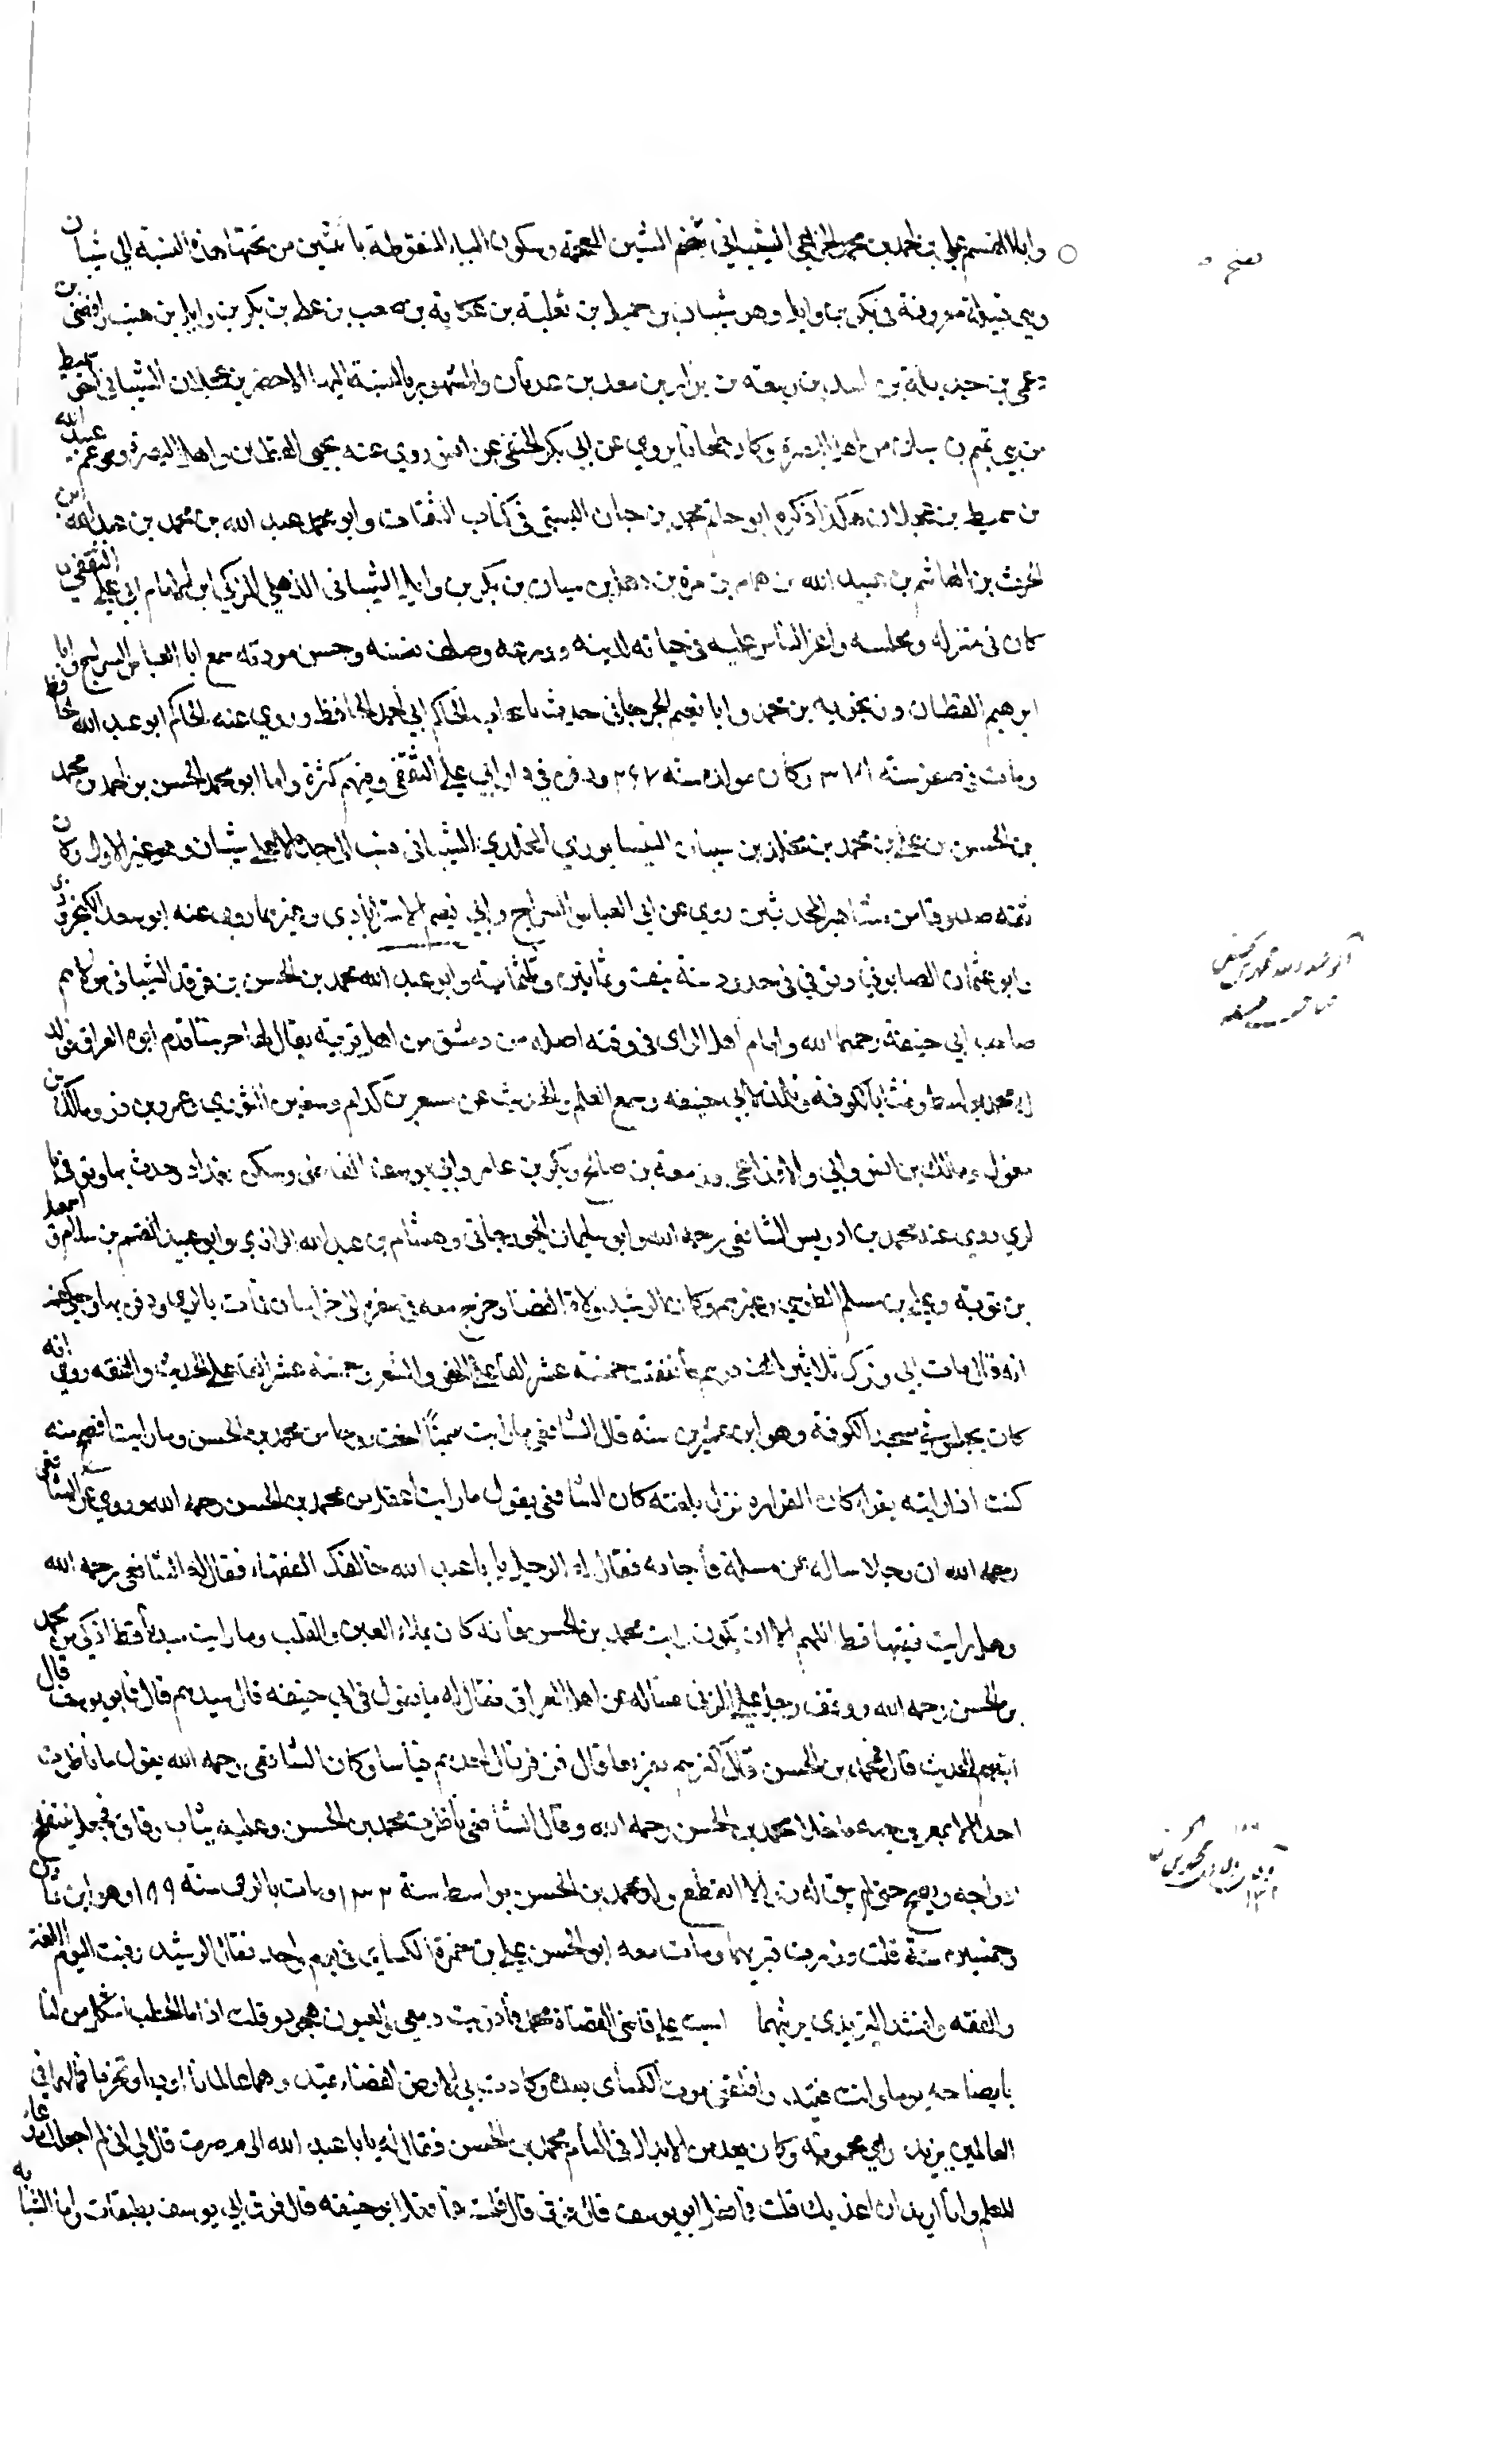 وابا القسم علي بن احمد بن محمد الخزاعي الشيباني بفتح الشين المعجمة وسكون الياء المنقوطة باثنتين من تحتها هذه النسبة الي شيبان
وهي قبيلة معروفة في بكر بن وايل وهو شيبان بن ثعلبة بن عكابة بن صعب بن علي بن بكر بن وايل بن هنب بن افصي بن
دعمي بن جديلة بن اسد بن ربيعة بن نزار بن معد بن عدنان والمشهور بالنسبة اليها الاخضر بن عجلان الشيباني اخي سميط
من بني تيم بن من اهل البصرة وكان يروي عن ابي بكر الحنفي عن انس روي عنه يحيي القطان واهل البصرة وهو عم عبيد الله
بن سميط بن عجلان هكذا ذكره ابو حاتم محمد بن حبان البستي في كتاب الثقات وابو محمد عبد الله بن محمد بن عبد الله بن
الحرث بن الهاشم بن عبيد الله بن همام بن مرة بن ذهل بن شيبان بن بكر بن وايل الشيباني الذهلي المزكي ابن الامام ابي علي الثقفي
كان في منزله ومجلسه واعز الناس عليه في حياته لدينه وورعه وصلف نفسه وحسن مودته سمع ابا العباس السراج وابا
ابرهيم القطان وزنجويه بن محمد وابا نعيم الجرجاني حديث الحاكم ابي احمد الحافظ وروي عنه الحاكم ابو عبد الله الحافظ
ومات في صفر سنة وكان مولده سنة ودفن في دار ابي علي الثقفي وفيهم كثرة واما ابو محمد الحسن بن احمد بن محمد
بن الحسن بن علي بن محمد بن مخلد بن شيبان النيسابوري المخلدي الشيباني نسب الي جده الاعلي شيبان وهو غير الاول وكان
ثقة صدوقا من مشاهير المحدثين روي عن ابي العباس السراج وابي نعيم الاستراباذي وغيرهما روي عنه ابو سعد الكنجروذي
وابو عثمان الصابوني وتوفي في حدود سنة نيف وثمانين وثلثماية وابو عبد الله محمد بن الحسن بن فرقد الشيباني مولاهم
صاحب ابي حنيفة رحمهما الله وامام اهل الراي في وقته اصله من دمشق من اهل قرية يقال لها حرستا قدم ابوه العراق فولد
له محمد بواسط ونشا بالكوفة وتلمذ لابي حنيفة وسمع العلم والحديث عن مسعر بن كدام وسفين الثوري وعمرو بن ذر ومالك بن
مغول ومالك بن انس والاوزاعي وزمعة بن صالح وبكير بن عامر وابي يوسف القاضي وسكن بغداد وحدث بها وتوفي با
لري روي عنه محمد بن ادريس الشافعي رحمه الله وابو سليمان الجوزجاني وهشام بن عبد الله الرازي وابو عبيد القسم بن سلام واسمعيل
بن توبة وعلي بن مسلم الطوسي وغيرهم وكان الرشيد ولاه القضا وخرج معه في سفره الي خراسان فمات بالري ودفن بها وحكي عنه
انه قال مات ابي وترك ثلاثين الف درهم فانفقت خمسة عشر الفا علي النحو والشعر وخمسة عشر الفا علي الحديث والفقه روي انه
كان يجلس في مسجد الكوفة وهو ابن عشرين سنة قال الشافعي ما رايت سمينا اخف روحا من محمد بن الحسن وما رايت افصح منه
كنت اذا رايته يقرا كان القران نزل بلغته كان الشافعي يقول ما رايت اعقل من محمد بن الحسن رحمه الله وروي عن الشافعي
رحمه الله ان رجلا ساله عن مسلة فاجابه فقال له الرجل يا با عبد الله خالفك الفقهاء فقال له الشافعي رحمه الله
وهل رايت فقيها قط اللهم الا ان يكون رايت محمد بن الحسن فانه كان يملاء العين والقلب وما رايت مبدنا قط اذكي من محمد
بن الحسن رحمه الله ووقف رجل علي المزني فساله عن اهل العراق فقال له ما تقول في ابي حنيفه قال سيدهم قال فابو يوسف قال
اتبعهم للحديث قال فمحمد بن الحسن قال اكثرهم تفريعا قال فزفر قال احدهم قياسا وكان الشافعي رحمه الله يقول ما ناظرت
احدا الا تمعر وجهه ما خلا محمد بن الحسن رحمه الله وقال الشافعي ناظرت محمد بن الحسن وعليه ثياب رقاق فجعل تنتفخ
اوداجه ويصيح حتي لم يبق له زر الا انقطع ولد محمد بن الحسن بواسط سنة ومات بالري سنة ١٨٩ وهو ابن ثمان
وخمسين سنة قلت وزرت قبرهما ومات معه ابو الحسن علي بن حمزة الكساي في يوم واحد فقال الرشيد دفنت اليوم اللغة
والفقه وانشد اليزيدي يرثيهما اسيت علي قاضي القضاة محمد فاذريت دمعي والعيون هجود وقلت اذا ما الخطب اشكل من لنا
بايضاحه يوما وانت فقيد واقلقني موت الكساي بعده وكادت بي الارض الفضاء تميد وهما عالمانا اوديا وتخرما فما لهما في
العالمين نديد راي محمويه وكان يعد من الابدال في المنام محمد بن الحسن فقال له يا با عبد الله الي م صرت قال لي اني لم اجعلك وعاء
للعلم وانا اريد ان اعذبك قلت فما فعل ابو يوسف قال فوقي قال قلت فما فعل ابو حنيفه قال فوق ابي يوسف بطبقات واما الشيبا